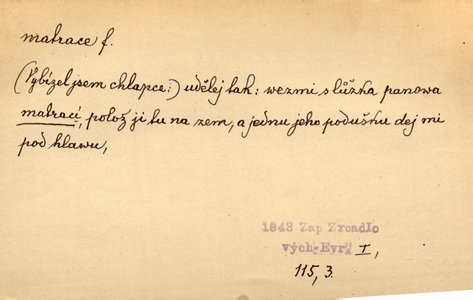 matrace f.
(Vybízel jsem chlapce:) udělej tak: wezmi s lůžka panowa
matraci, polož ji tu na zem, a jednu jeho podušku dej mi
pod hlawu,
1843 Zap Zrcadlo
vých. Evr. I,
115, 3.